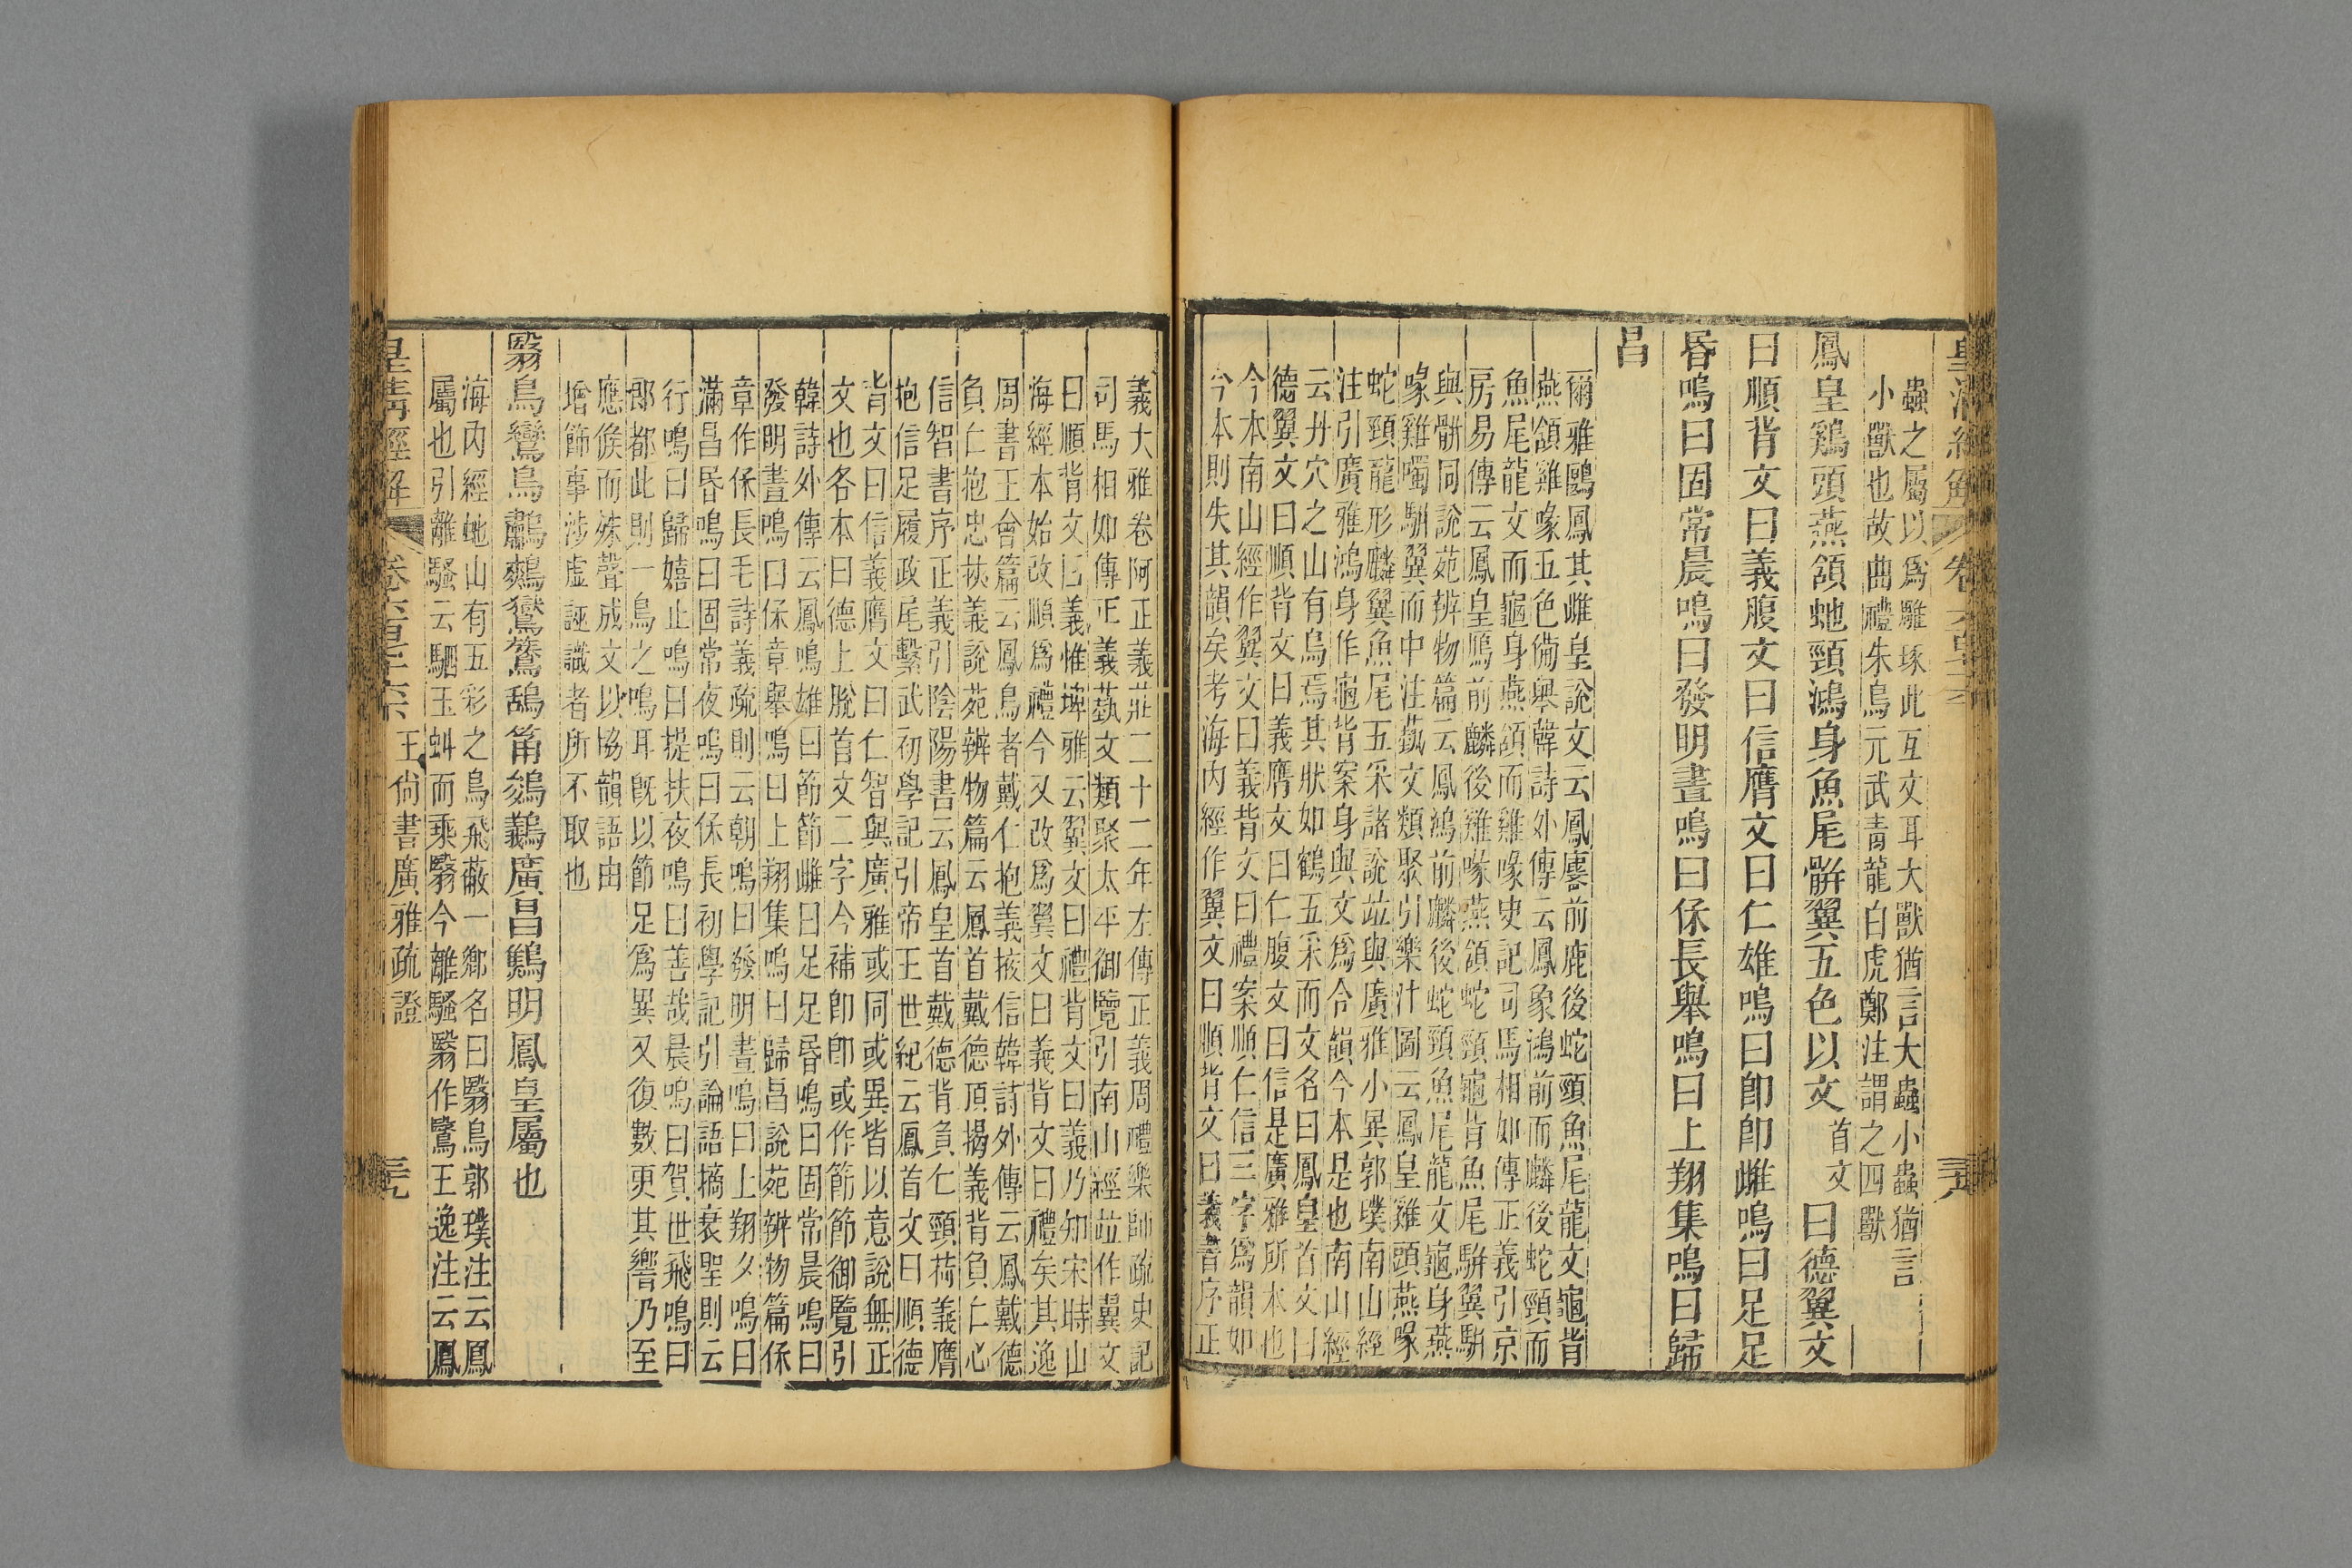 皇清經解
卷六百六十六
三六
蟲之屬以爲雕琢此互文耳大獸猶言大蟲小蟲猶言
小獸也故曲禮朱鳥元武靑龍白虎鄭注謂之四獸
鳳皇鷄頭燕頷虵頸鴻身魚尾骿翼五色以文首文曰德翼文
曰順背文曰義腹文曰信膺文曰仁雄鳴曰卽卽雌鳴曰足足
昬鳴曰固常晨鳴曰發明晝鳴曰保長舉鳴曰上翔集鳴曰歸
昌
爾雅鶠鳳其雌皇說文云鳳麐前鹿後蛇頸魚尾龍文龜背
燕頷雞喙五色備舉韓詩外傳云鳳象鴻前而麟後蛇頸而
魚尾龍文而龜身燕頷而雞喙史記司馬相如傳正義引京
房易傳云鳳皇鴈前麟後雞喙燕頷蛇頸龜背魚尾駢翼騈
與骿同說苑辨物篇云鳳鴻前麟後蛇頸魚尾龍文龜身燕
喙雞噣駢翼而中注蓺文類聚引樂汁圖云鳳皇雞頭燕喙
蛇頸龍形麟翼魚尾五采諸說竝與廣雅小異郭璞南山經
注引廣雅鴻身作龜背案身與文爲合韻今本是也南山經
云丹穴之山有鳥焉其狀如鶴五采而文名曰鳳皇首文曰
德翼文曰順背文曰義膺文曰仁腹文曰信是廣雅所本也
今本南山經作翼文曰義背文曰禮案順仁信三字爲韻如
今本則失其韻矣考海內經作翼文曰順背文曰義書序正
義大雅卷阿正義莊二十二年左傳正義周禮樂師疏史記
司馬相如傳正義蓺文類聚太平御覽引南山經竝作翼文
曰順背文曰義惟埤雅云翼文曰禮背文曰義乃知宋時山
海經本始改順爲禮今又改爲翼文曰義背文曰禮矣其逸
周書王會篇云鳳鳥者戴仁抱義掖信韓詩外傳云鳳戴德
負仁抱忠挾義說苑辨物篇云鳳首戴德頂揭義背負仁心
信智書序正義引陰陽書云鳳皇首戴德背負仁頸荷義膺
抱信足履政尾繫武初學記引帝王世紀云鳳首文曰順德
背文曰信義膺文曰仁智與廣雅或同或異皆以意說無正
文也各本曰德上脫首文二字今補卽卽或作節節御覽引
韓詩外傳云鳳鳴雄曰節節雌曰足足昬鳴曰固常晨鳴曰
發明晝鳴曰保章舉鳴曰上翔集鳴曰歸昌說苑辨物篇保
章作保長毛詩義疏則云朝鳴曰發明晝鳴曰上翔夕鳴曰
滿昌昬鳴曰固常夜鳴曰保長初學記引論語摘衰聖則云
行鳴曰歸嬉止鳴曰提扶夜鳴曰善哉晨鳴曰賀世飛鳴曰
郞都此則一鳥之鳴耳旣以節足爲異又復數更其響乃至
應候而殊聲成文以協韻語由
增飾事涉虛誣識者所不取也
鷖鳥鸞鳥鷫鷞鸑鷟鵠筩鵕䴊廣昌鷦明鳳皇屬也
海內經虵山有五彩之鳥飛蔽一鄉名曰鷖鳥郭璞注云鳳
屬也引離騷云駟玉虯而乘鷖今離騷鷖作鷖王逸注云鳳
皇淸經解
卷六百六十六
王尙書廣雅疏證
三元